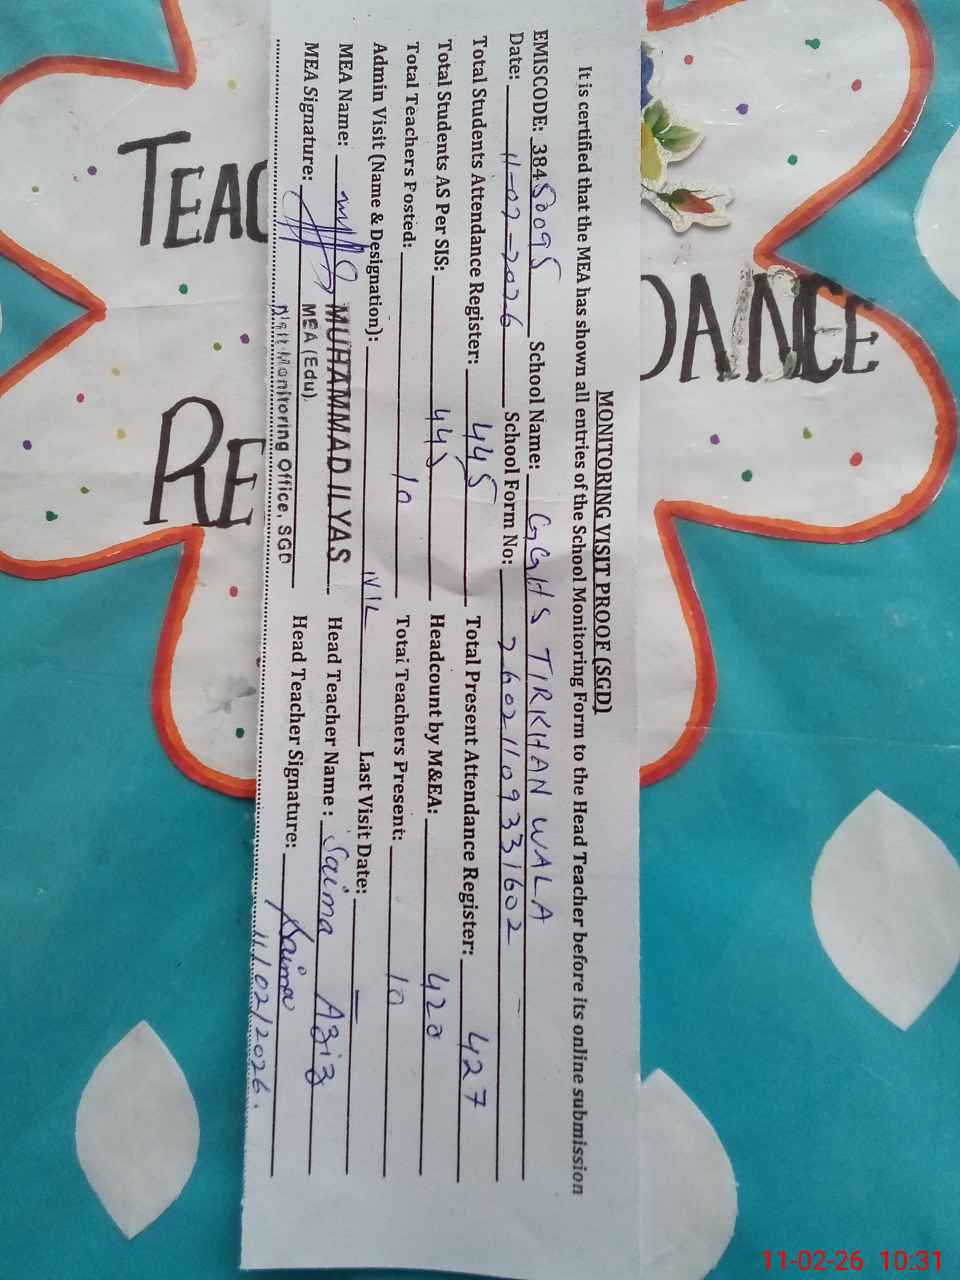 MONITORING VISIT PROOF (SGD)
It is certified that the MEA has shown all entries of the School Monitoring Form to the Head Teacher before its online submission
EMISCODE: 38450095 School Name: GGHS TIRKHAN WALA
Date: 11-02-2026 School Form No: 26021109331602
Total Students Attendance Register: 445 Total Present Attendance Register: 427
Total Students AS Per SIS: 445 Headcount by M&EA: 420
Total Teachers Posted: 10 Total Teachers Present: 10
Admin Visit (Name & Designation): NIL Last Visit Date: —
MEA Name: MUHAMMAD ILYAS Head Teacher Name : Saima Aziz
MEA Signature: MEA (Edu). Head Teacher Signature: Saima
Distt: Monitoring Office, SGD 11/02/2026.
TEAC
DANCE
RE
11-02-26 10:31